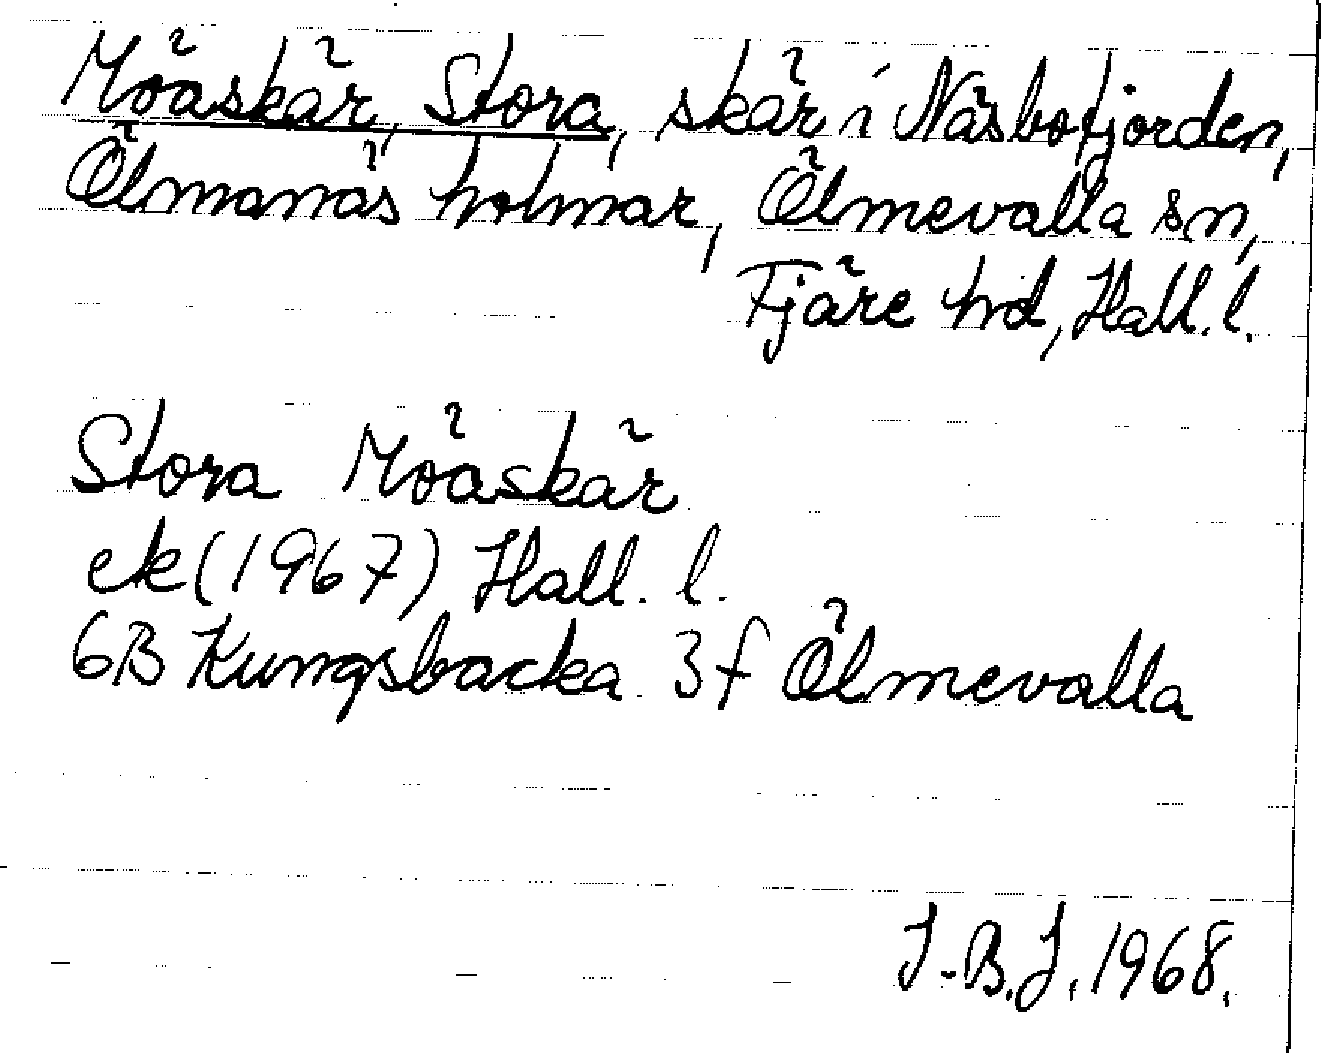 Möaskär, Stora, skär i Näsbofjorden,
Ölmanäs holmar, Ölmevalla sn,
Fjäre hd, Hall. l.
Stora Möaskär
ek (1967) Hall. l.
6B Kungsbacka 3f Ölmevalla
I-B.J. 1968.